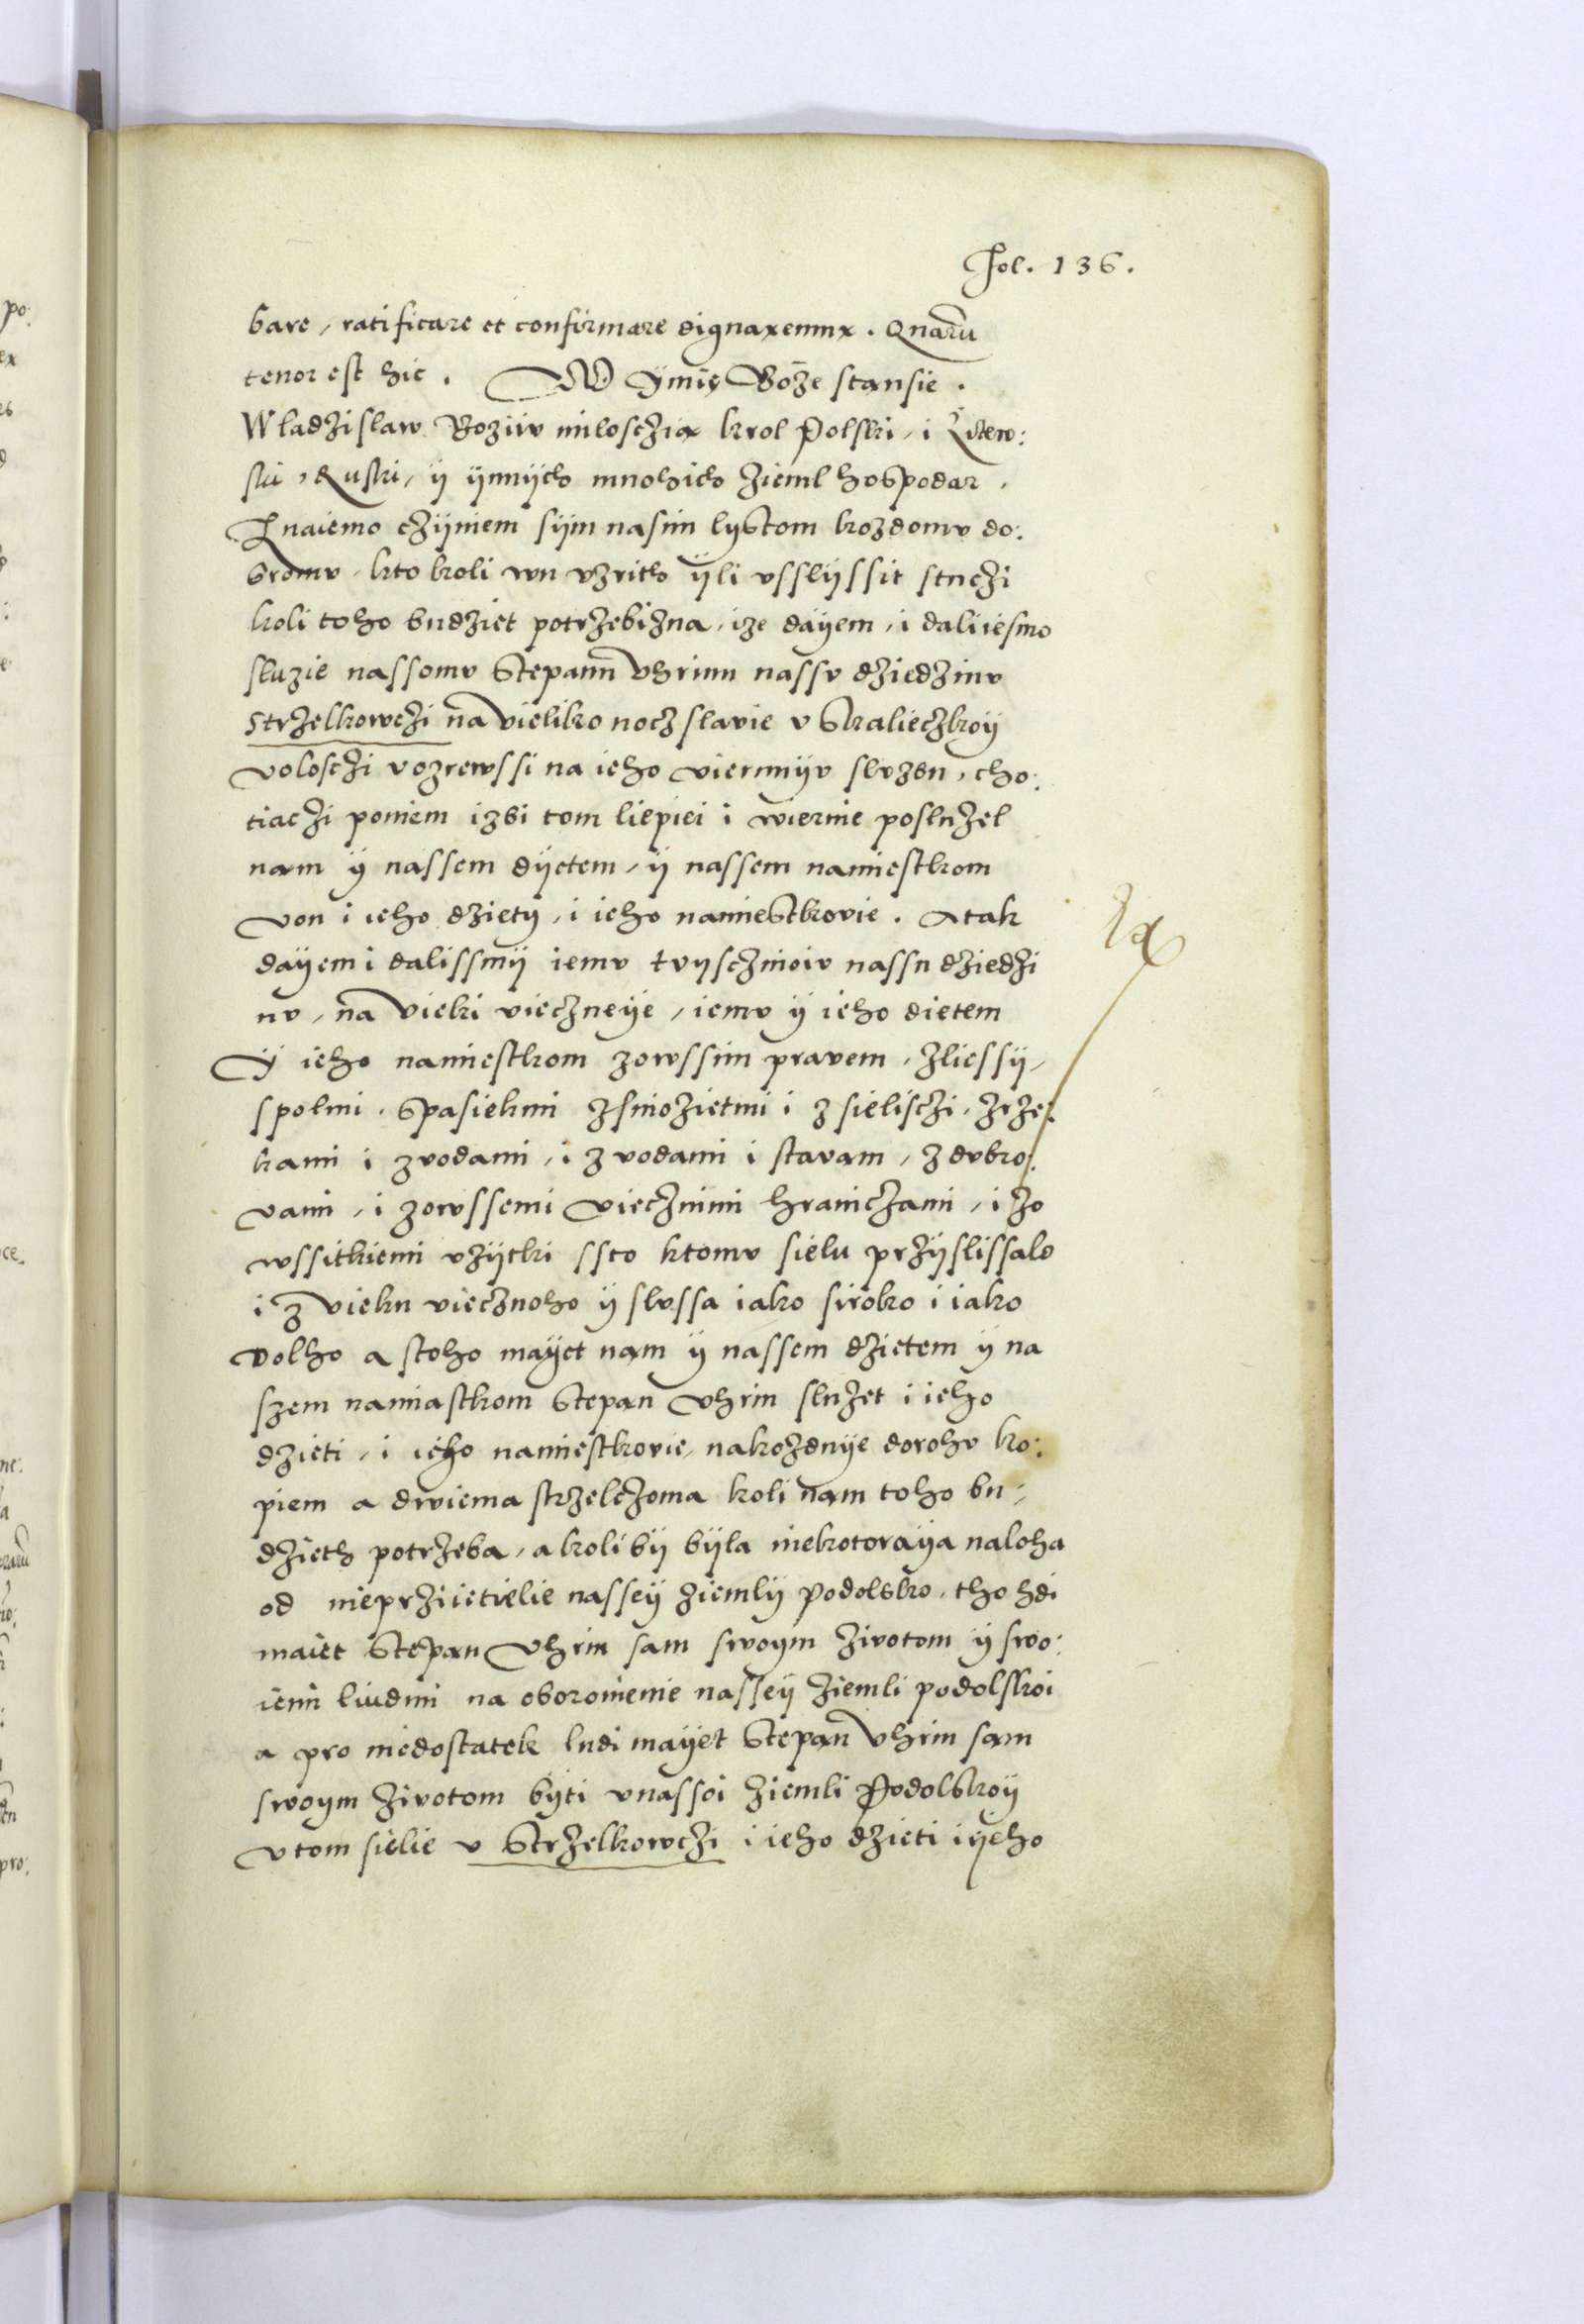 Fol. 136.
bare, ratificare et confirmare dignaremur. Quarū
tenor est hic. W Ÿmię Boże stansie.
Władzislaw Boziiv milosczia krol Polski, i Litew:
ski, Ruski, ÿ ÿnnÿch mnohich zieml hospodar.
Znaiemo czÿniem sÿm nasim lystom kozdomv do:
bromv. kto koli wn vzrith ÿli vsslÿssit stuczi
koli toho budziet potrzebizna, ize daÿem, i daliiesmo
sluzie nassomv Stepanu Vhrinu nassv dziedzinv
Strzelkowczi na vieliko nocz slavie v Skalieczkoÿ
volosczi vozrewssi na ieho viernnÿv slvzbu, cho:
tiaczi poniem izbi tom liepiei i wiernie posluzel
nam ÿ nassem dÿetem, ÿ nassem namiestkom
von i ieho dziety, i ieho namiestkovie. A tak
daÿem i dalissmÿ iemv tvÿscznoiv nassu dziedzi
nv, na vieki viecznеÿe, iemv ÿ ieho dietem
Ÿ ieho namiestkom zowssim pravem, zliessÿ,
spolmi. spasiekmi zsmozietmi i z sielisczi, zrze:
kami i zvodami, i zvodami i stavam, zdvbro:
vami, i zowssemi viecznimi hraniczami, i zo
wssitkiemi vzÿtki ssto ktomv sielu przÿslissalo
i z vieku viecznoho ÿ slvssa iako siroko i iako
dolho a stoho maÿet nam ÿ nassem dzietem ÿ na
szem namiastkom Stepan Vhrin sluzet i ieho
dzieti, i ieho namiestkovie, nakozdnÿe dorohv ko:
piem a dwiema strzelczoma koli nam toho bu:
dzieth potrzeba, a koli bÿ bÿla niekotoraÿa naloha
od nieprziietielie nasseÿ ziemlÿ Podolsko, tho hdi
maiet Stepan Vhrin sam swoÿm zivotom ÿ swo:
iemi liudmi na oboronienie nasseÿ ziemli podolskoi
a pro niedostatek ludi maÿet Stepan Vhrin sam
swoÿm zivotom bÿti vnassoi ziemli Podolskoÿ
v tom sielie v Strzelkowczi i ieho dzieti iÿeho